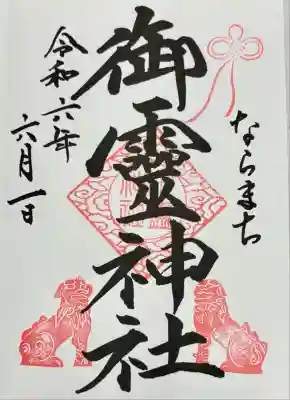 ならまち
御靈神社
令和六年
六月一日